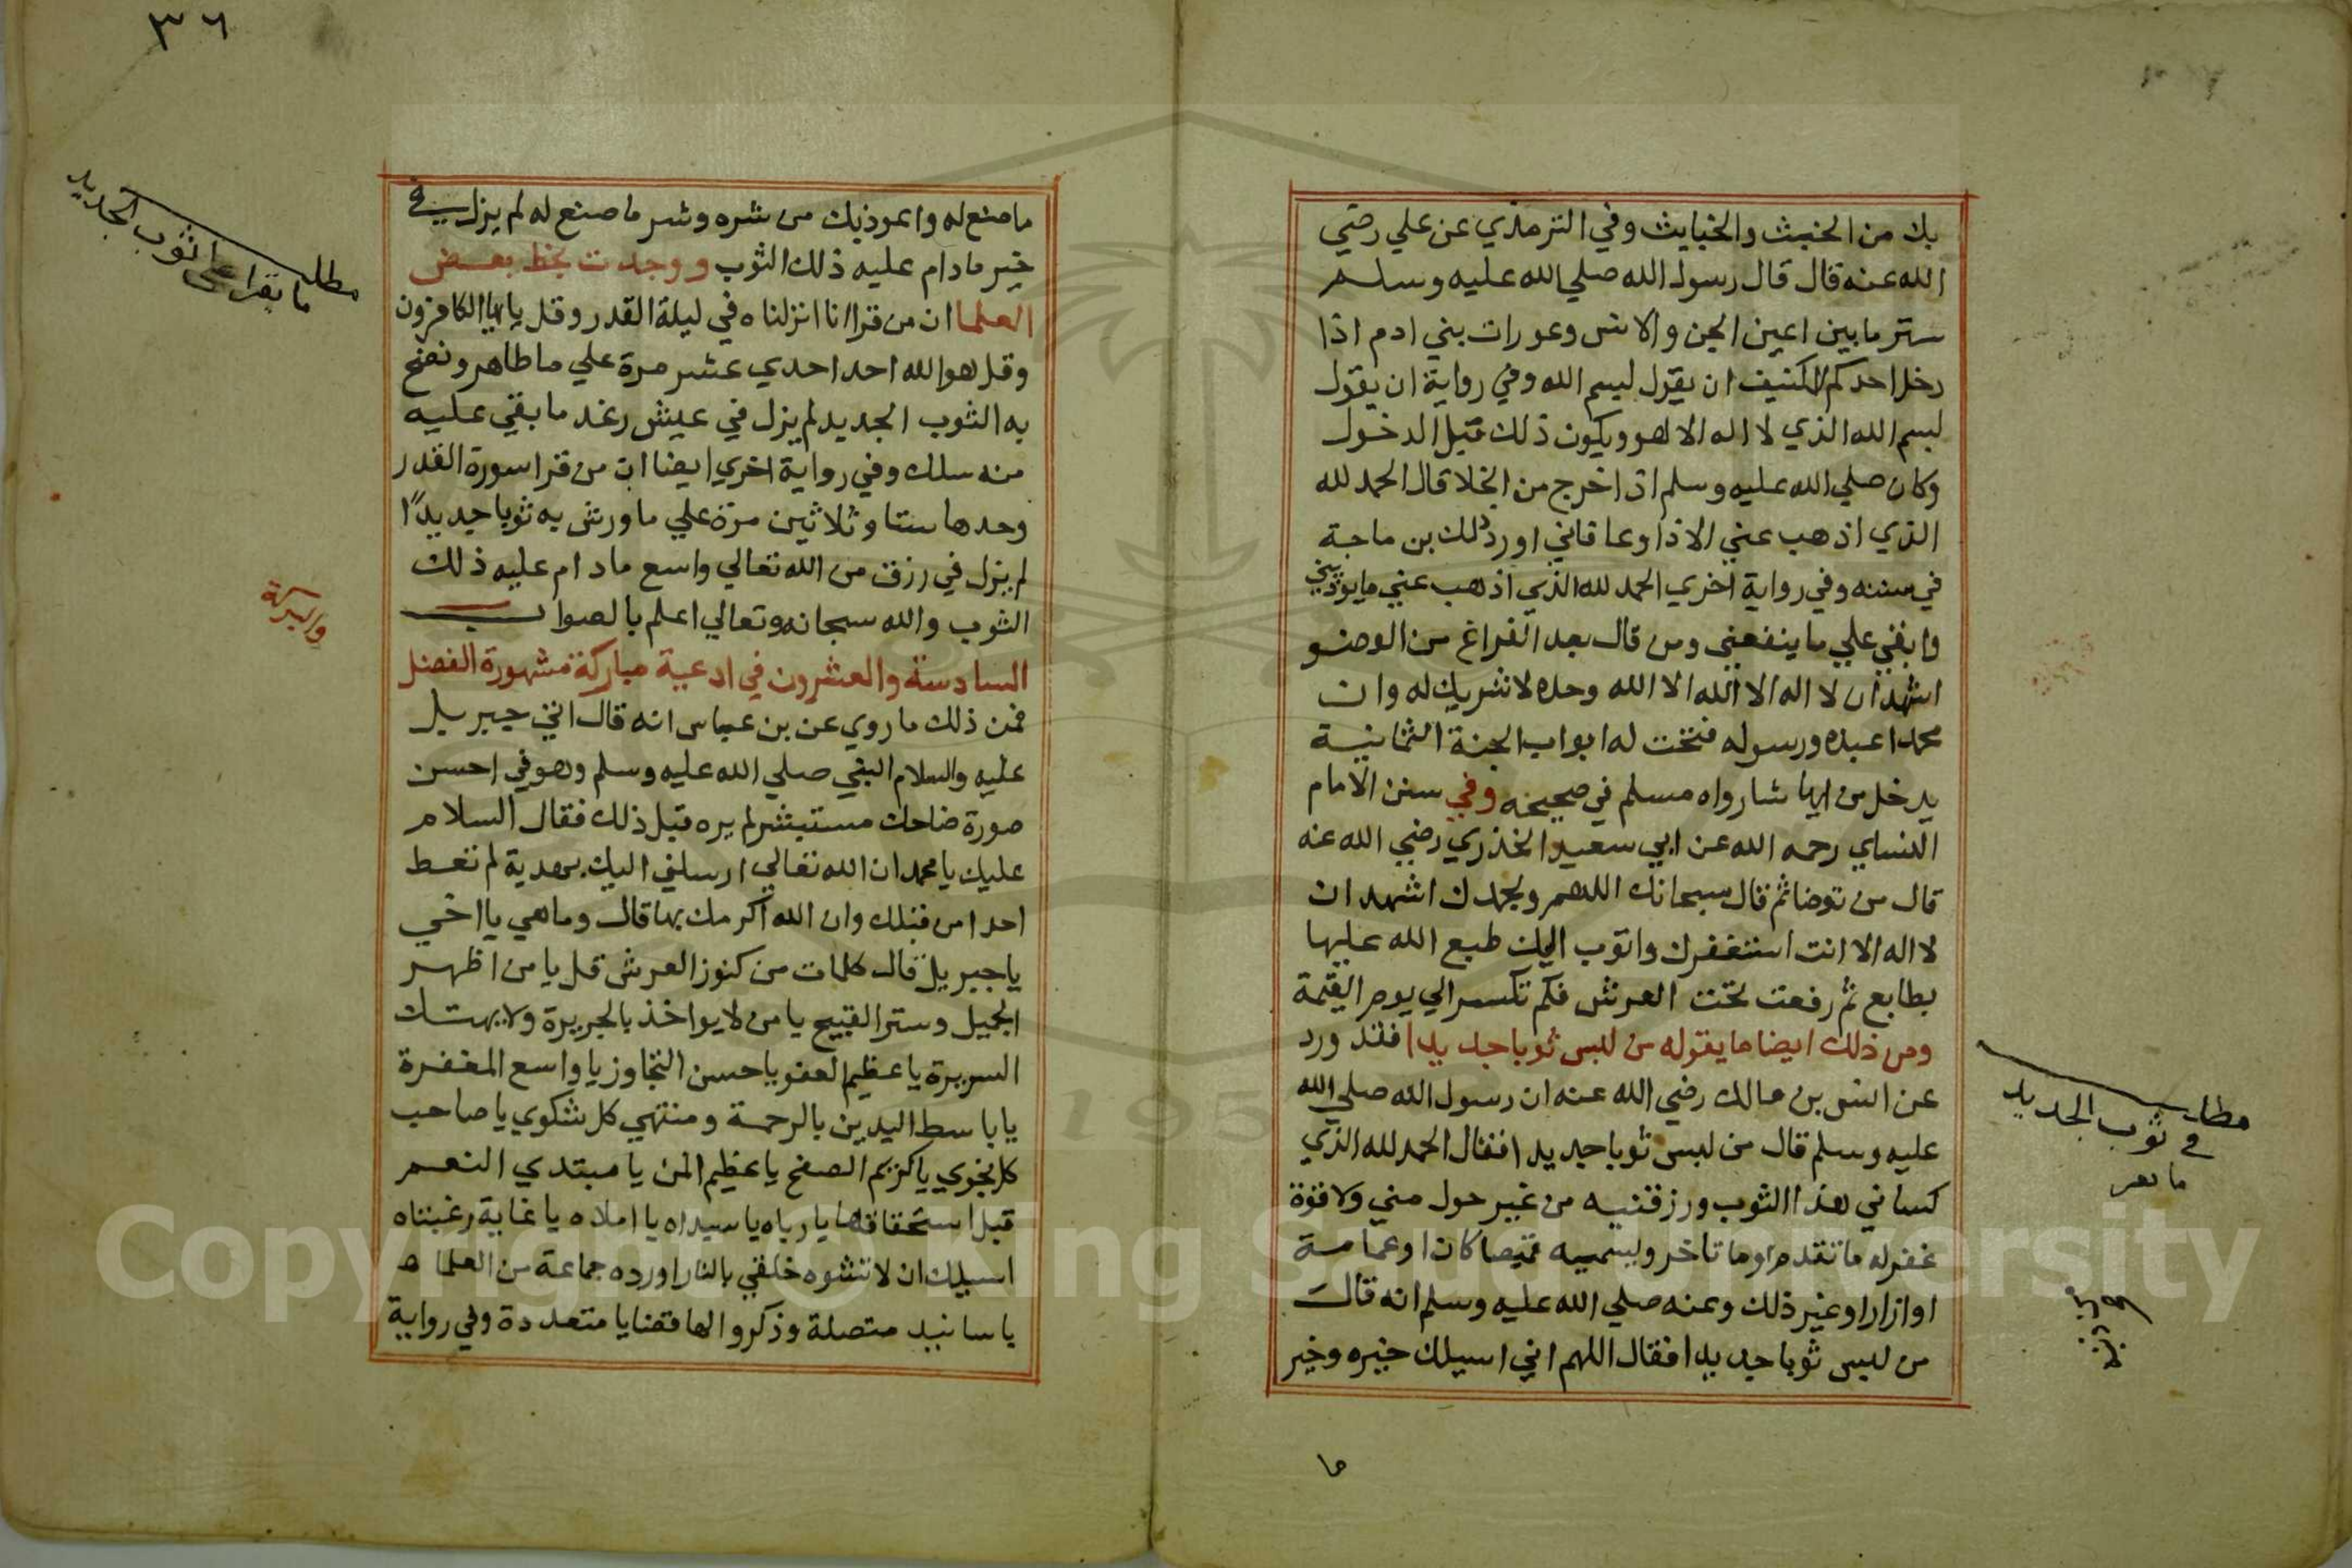 بك من الخبث والخبايث وفي الترمذي عن علي رضي
الله عنه قال قال رسول الله صلي الله عليه وسلم
ستر ما بين اعين الجن والانس وعورات بني ادم اذا
دخل احدكم الكنيف ان يقول بسم الله وفي رواية ان يقول
بسم الله الذي لا اله الا هو ويكون ذلك قبل الدخول
وكان صلي الله عليه وسلم اذا خرج من الخلا قال الحمد لله
الذي اذهب عني الاذا وعافاني اورد ذلك بن ماجة
في سننه وفي رواية اخري الحمد لله الذي اذهب عني ما يوذيني
وابقي علي ما ينفعني ومن قال بعد الفراغ من الوضو
اشهد ان لا اله الا الله الا الله وحده لا شريك له وان
محمدا عبده ورسوله فتحت له ابواب الجنة الثمانية
يدخل من ايها شا رواه مسلم في صحيحه وفي سنن الامام
النساي رحمه الله عن ابي سعيد الخذري رضي الله عنه
قال من توضا ثم قال سبحانك اللهم وبحمدك اشهد ان
لا اله الا انت استغفرك واتوب اليك طبع الله عليها
بطابع ثم رفعت تحت العرش فلم تكسر الي يوم القيمة
ومن ذلك ايضا ما يقوله من لبس ثوبا جديدا فقد ورد
عن انس بن مالك رضي الله عنه ان رسول الله صلي الله
عليه وسلم قال من لبس ثوبا جديدا فقال الحمد لله الذي
كساني هذا الثوب ورزقنيه من غير حول مني ولا قوة
غفر له ما تقدم وما تاخر ويسميه قميصا كان او عمامة
او ازارا وغير ذلك وعنه صلي الله عليه وسلم انه قال
من لبس ثوبا جديدا فقال اللهم اني اسيلك خيره وخير
ما
مطلب
في ثوب الجديد
٣٦
ما صنع له واعوذ بك من شره وشر ما صنع له لم يزل في
خير ما دام عليه ذلك الثوب ووجدت بخط بعض
العلما ان من قرا انا انزلناه في ليلة القدر وقل يا ايها الكافرون
وقل هو الله احد احدي عشر مرة علي ما طاهر ونضح
به الثوب الجديد لم يزل في عيش رغد ما بقي عليه
منه سلك وفي رواية اخري ايضا ان من قرا سورة القدر
وحدها ستا وثلاثين مرة علي ما ورش به ثوبا جديدا
لم يزل في رزق من الله تعالي واسع ما دام عليه ذلك
الثوب والله سبحانه وتعالي اعلم بالصواب
السادسة والعشرون في ادعية مباركة مشهورة الفضل
فمن ذلك ما روي عن بن عباس انه قال اتي جبريل
عليه والسلام النبي صلي الله عليه وسلم وهو في احسن
صورة ضاحك مستبشر لم يره قبل ذلك فقال السلام
عليك يا محمد ان الله تعالي ارسلني اليك بهدية لم تعط
احدا من قبلك وان الله اكرمك بها قال وما هي يا اخي
يا جبريل قال كلمات من كنوز العرش قل يا من اظهر
الجميل وستر القبيح يا من لا يواخذ بالجريرة ولا يهتك
السريرة يا عظيم العفو يا حسن التجاوز يا واسع المغفرة
يا باسط اليدين بالرحمة ومنتهي كل شكوي يا صاحب
كل نجوي يا كريم الصفح يا عظيم المن يا مبتدي النعم
قبل استحقاقها يا رباه يا سيداه يا املاه يا غاية رغبتاه
اسيلك ان لا تشوه خلقي بالنار اورده جماعة من العلما
باسانيد متصلة وذكروا لها قضايا متعددة وفي رواية
مطلب
ما يقرا علي الثوب الجديد
Copyright © King Saud University
195